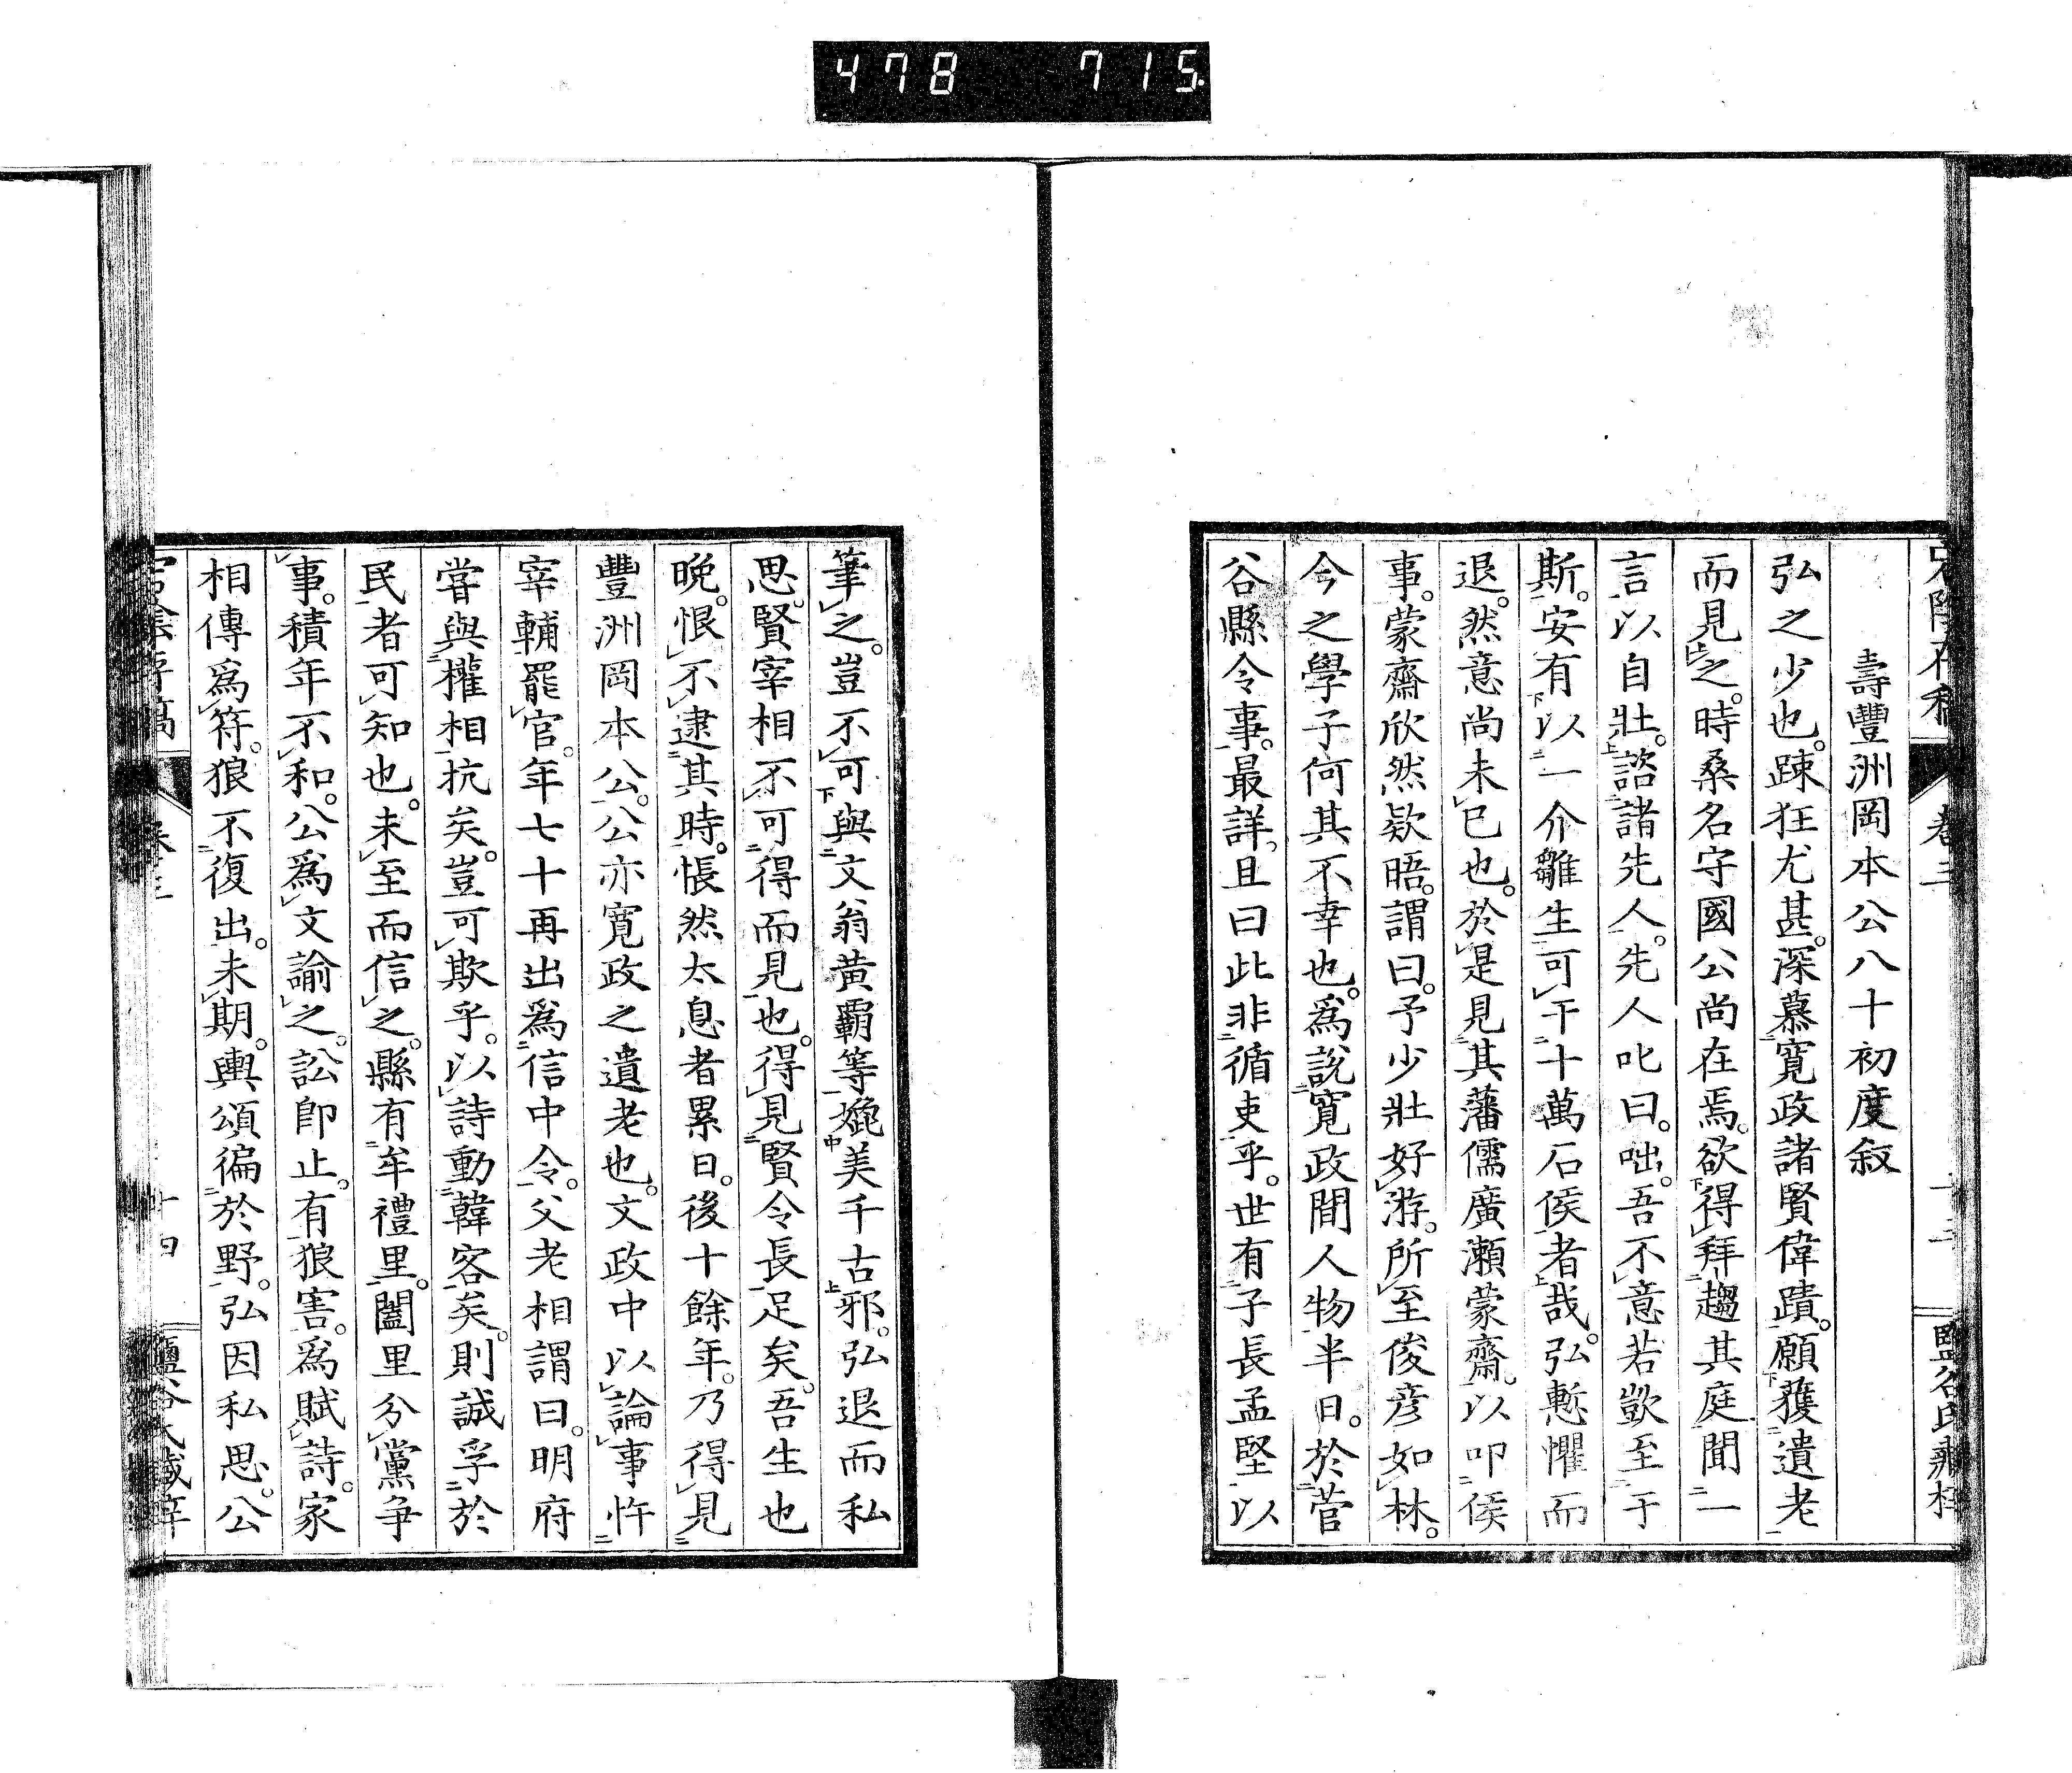 478 715
卷三
壽豐洲岡本公八十初度叙
弘之少也。疎狂尤甚。深慕寛政諸賢偉蹟。願獲遺老
而見之。時桑名守國公尚在焉。欲得拜趨其庭聞一
言以自壯。諮諸先人。先人叱曰。咄。吾不意若歖至于
斯。安有以一介雛生可干十萬石侯者哉。弘慙懼而
退。然意尚未已也。於是見其藩儒廣瀬蒙齋。以叩侯
事。蒙齋欣然欵晤。謂曰。予少壯好游。所至俊彦如林。
今之學子何其不幸也。爲說寛政間人物半日。於菅
谷縣令事。最詳。且曰此非循吏乎。世有子長孟堅以
筆之。豈不可與文翁黄霸等媲美千古邪。弘退而私
思。賢宰相不可得而見也。得見賢令長足矣。吾生也
晩。恨不逮其時。悵然太息者累日。後十餘年。乃得見
豐洲岡本公。公亦寛政之遺老也。文政中以論事忤
宰輔罷官。年七十再出爲信中令。父老相謂曰。明府
甞與權相抗矣。豈可欺乎。以詩動韓客矣。則誠孚於
民者可知也。未至而信之。縣有牟禮里。闔里分黨争
事。積年不和。公爲文諭之。訟卽止。有狼害。爲賦詩。家
相傳爲符。狼不復出。未期。輿頌徧於野。弘因私思。公